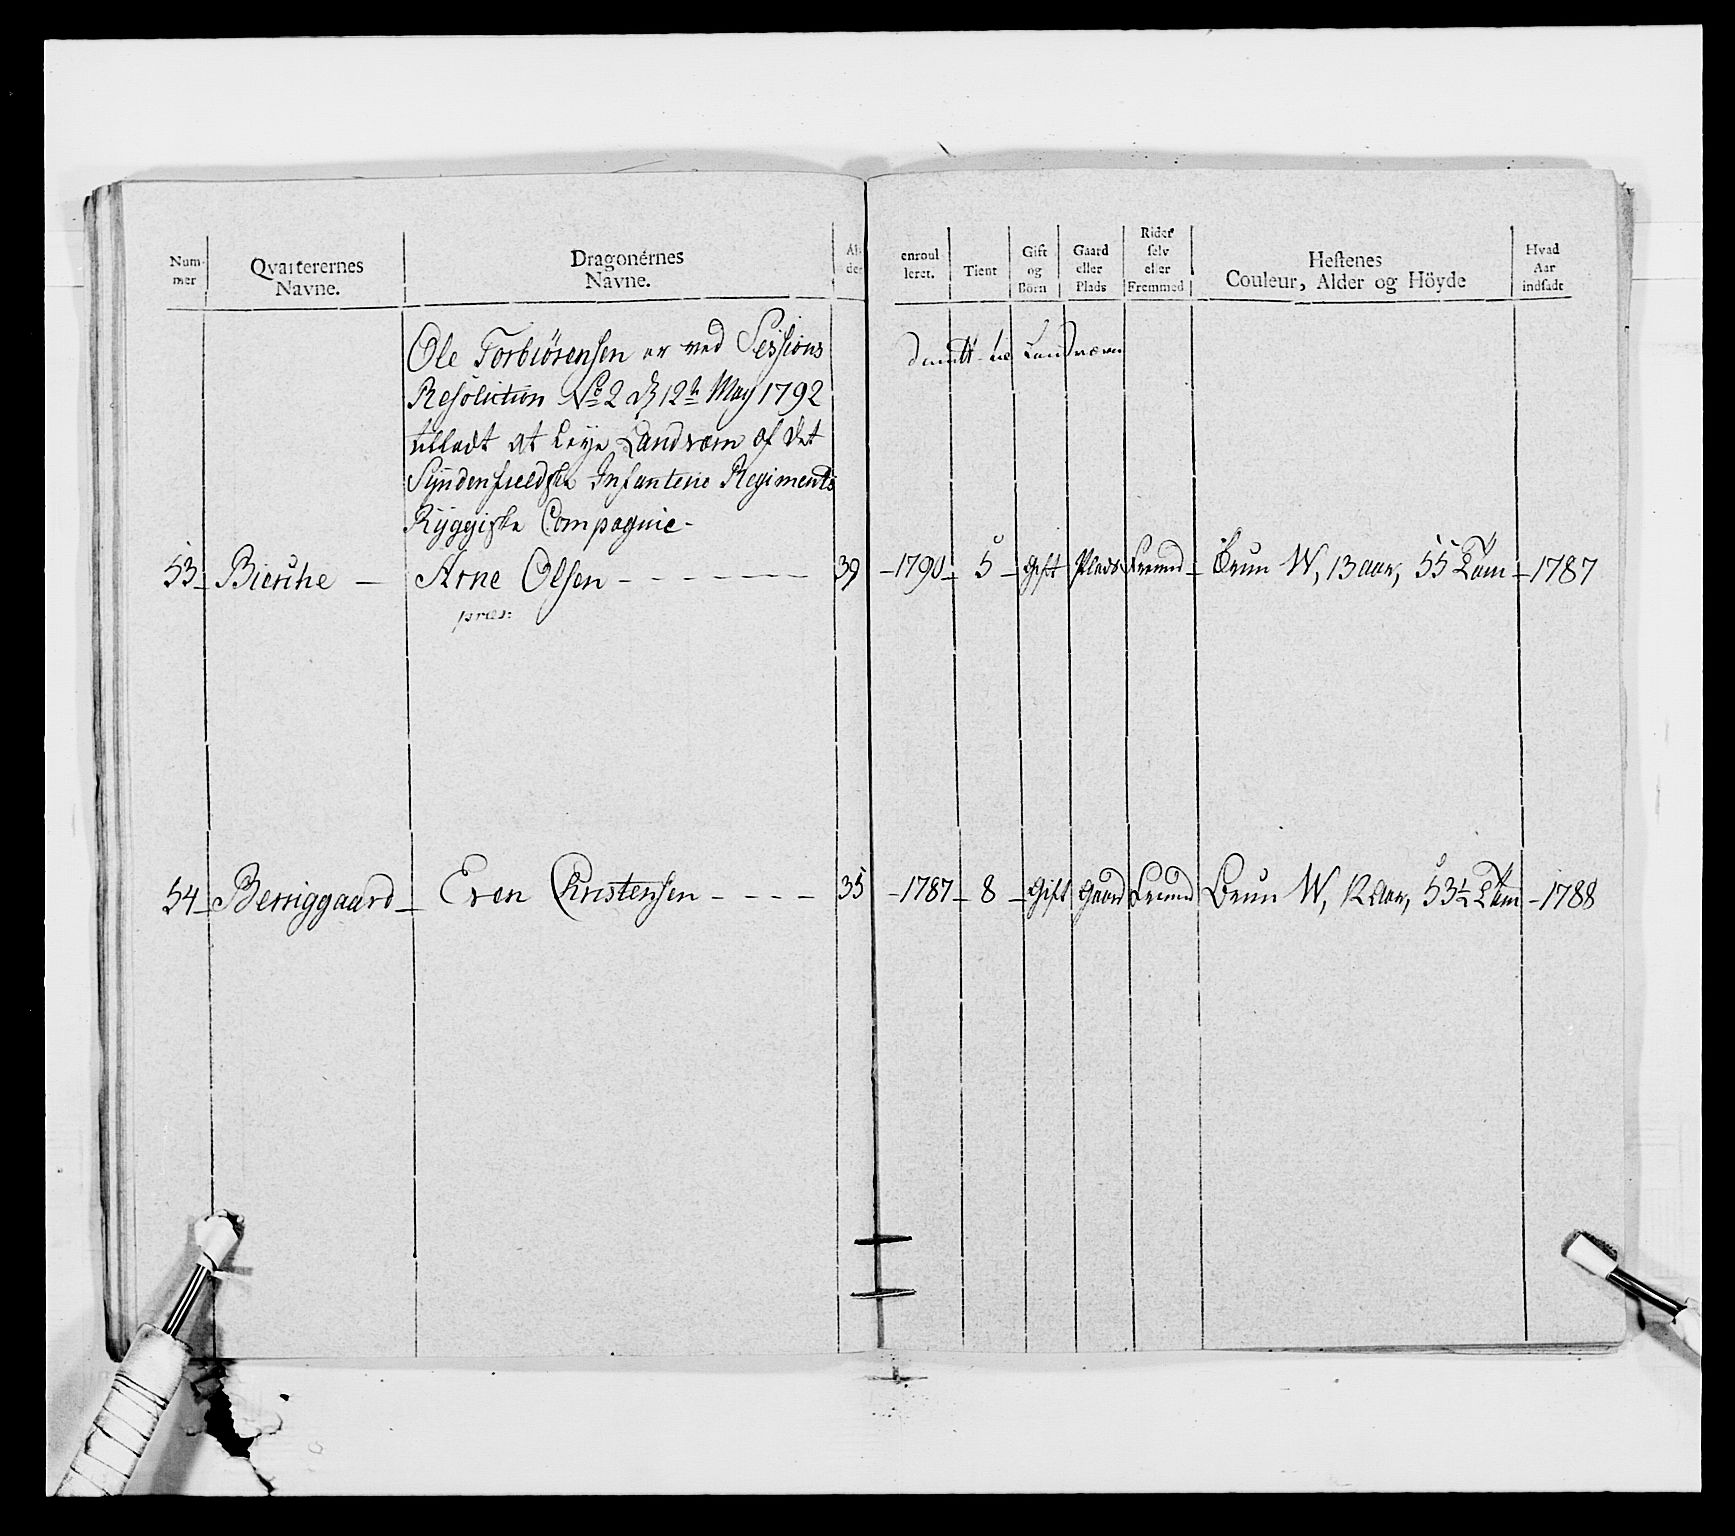 Num-
mer
Qvarterernes
Navne.
Dragonernes
Navne.
Al-
der
enroul
leret.
Tient
Gift
og
Börn
Gaard
eller
Plads
Rider
selv
eller
Fremmed
Hestenes
Couleur, Alder og Höyde
Hvad
Aar
indsadt
Ole Torbiörensen er ved Sessions
Resolution No 2 12te May 1792
tilladt at Landværn af det
Syndenfieldske Infanterie Regiments
Ryggiske Compagnie-
53 Bierche — Arne Olsen - - - - - 39 - 1790 - 5 - Gift Plads Fremd - Brun W, 13 aar, 55 Tom - 1787
præs:
54 - Berriggaard - Even Christensen - - - - 35 - 1787 - 8 - Gift Gaard Fremd Brun W, 12 Aar, 53½ Tom - 1788